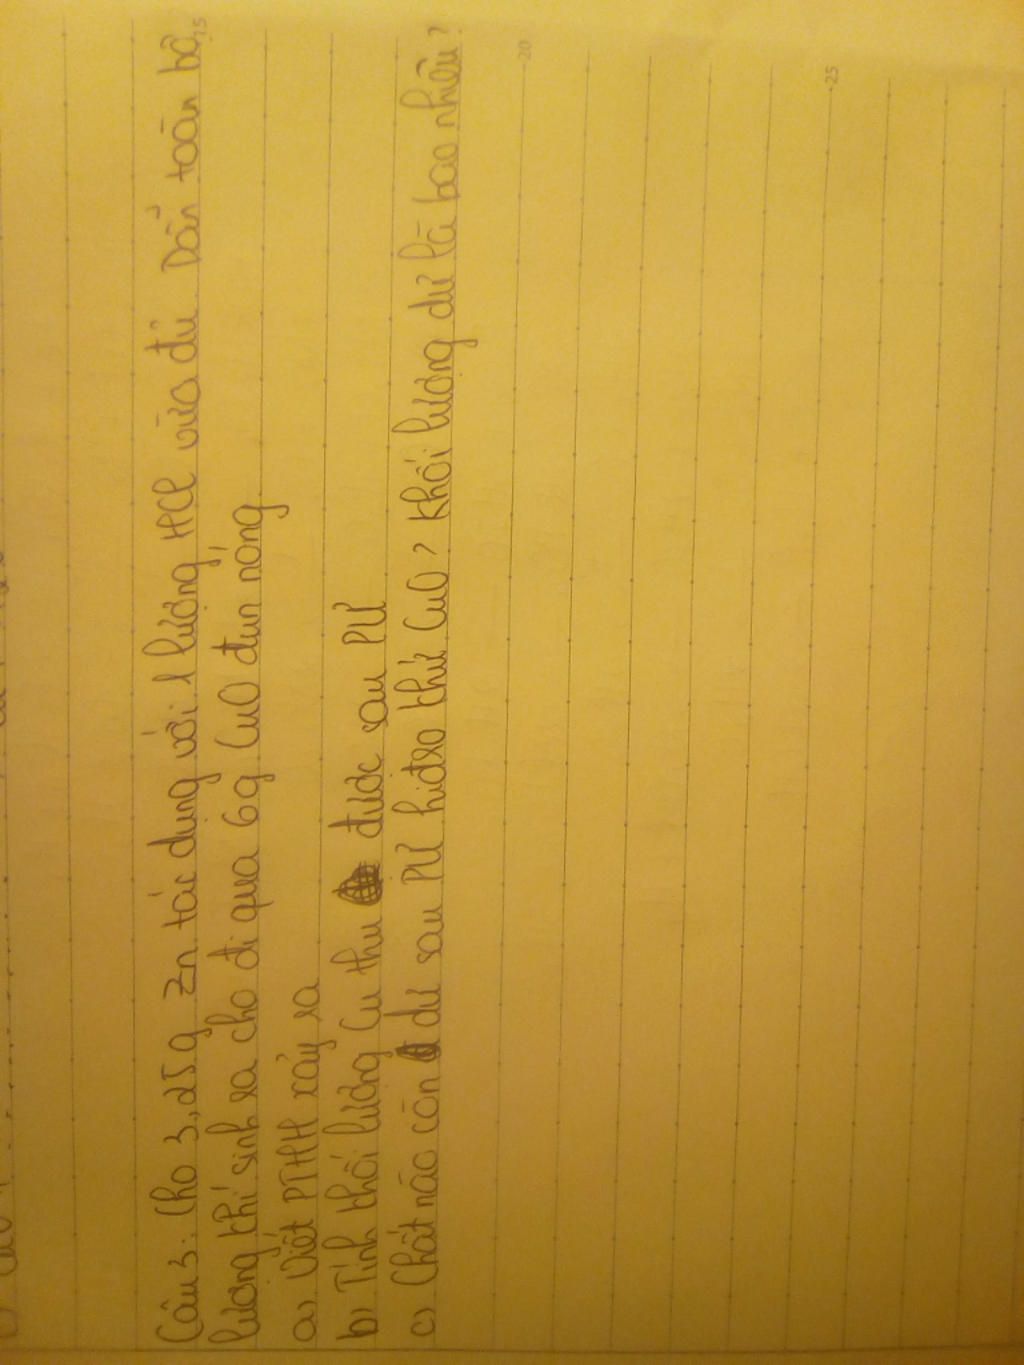 Câu 3: Cho 3,25g Zn tác dụng với 1 lượng HCl vừa đủ. Dẫn toàn bộ
lượng khí sinh ra cho đi qua 6g CuO đun nóng
a) Viết PTHH xảy ra
b) Tính khối lượng Cu thu được sau PƯ
c) Chất nào còn dư sau PƯ hiđro khử CuO? Khối lượng dư là bao nhiêu?
15
20
25